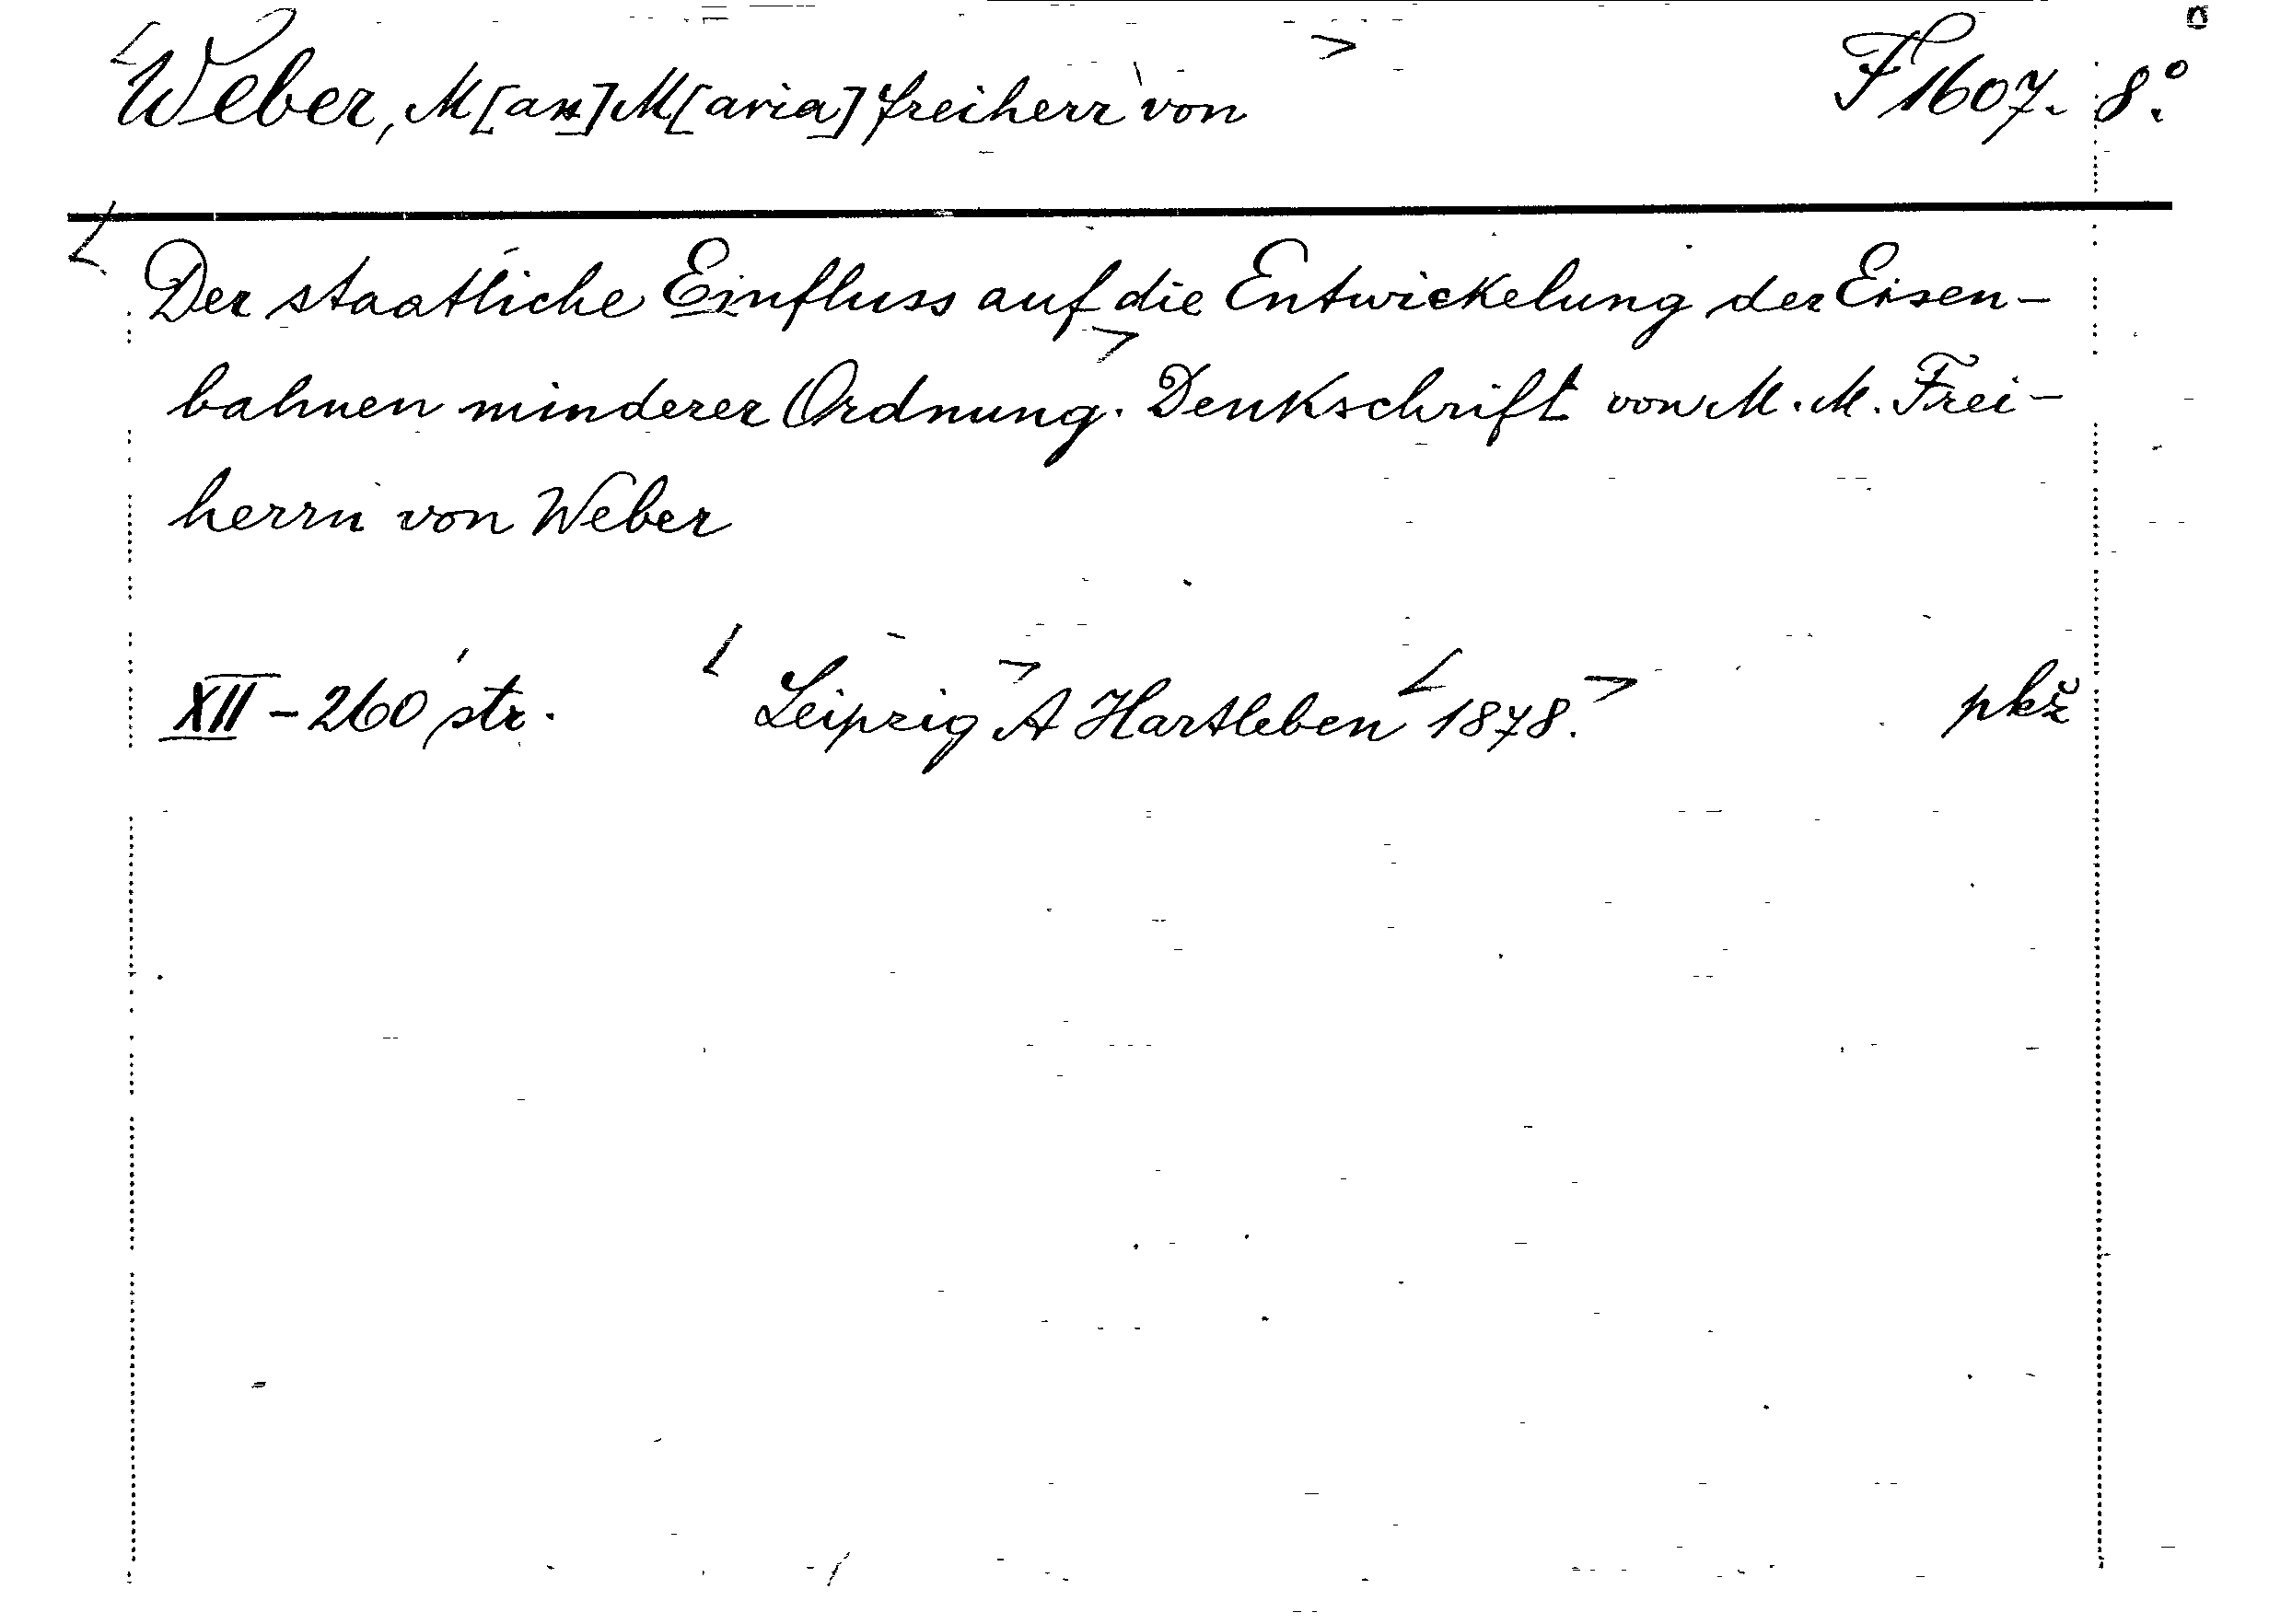 Weber, M[ax] M[aria] freiherr von F 1607. 8.°
Der staatliche Einfluss auf die Entwickelung der Eisen-
bahnen minderer Ordnung. Denkschrift von M. M. Frei-
herrn von Weber
XII - 260 str. Leipzig A Hartleben 1878. pkž